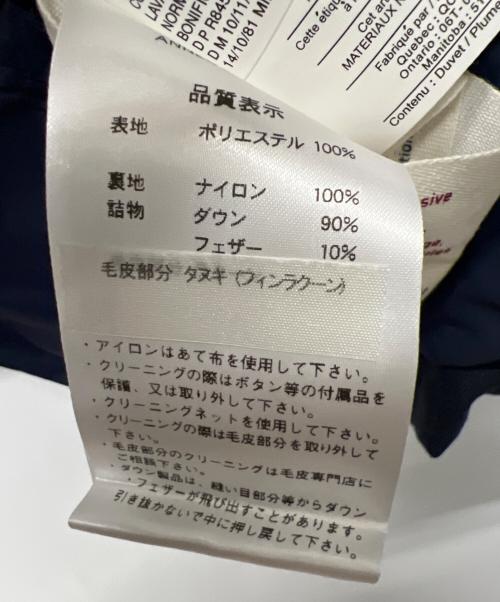 品質表示
表地 ポリエステル 100%
裏地 ナイロン 100%
詰物 ダウン 90%
フェザー 10%
毛皮部分 タヌキ (フィンラクーン)
・アイロンはあて布を使用して下さい。
・クリーニングの際はボタン等の付属品を
保護、又は取り外して下さい。
・クリーニングネットを使用して下さい。
・クリーニングの際は毛皮部分を取り外して
下さい。
・毛皮部分のクリーニングは毛皮専門店に
ご相談下さい。
・ダウン製品は、縫い目部分等からダウン
・フェザーが飛び出すことがあります。
引き抜かないで中に押し戻して下さい。
Cette étiq
à l'
Cet ar
MATERIAUX
Fabriqué par /
Quebec: QC
Ontario: 06T
Manitoba: 51
Contenu: Duvet / Plum
LAV
NORM
BONIFI
D P R845
D M 10/11
14/10/81 MI
sive